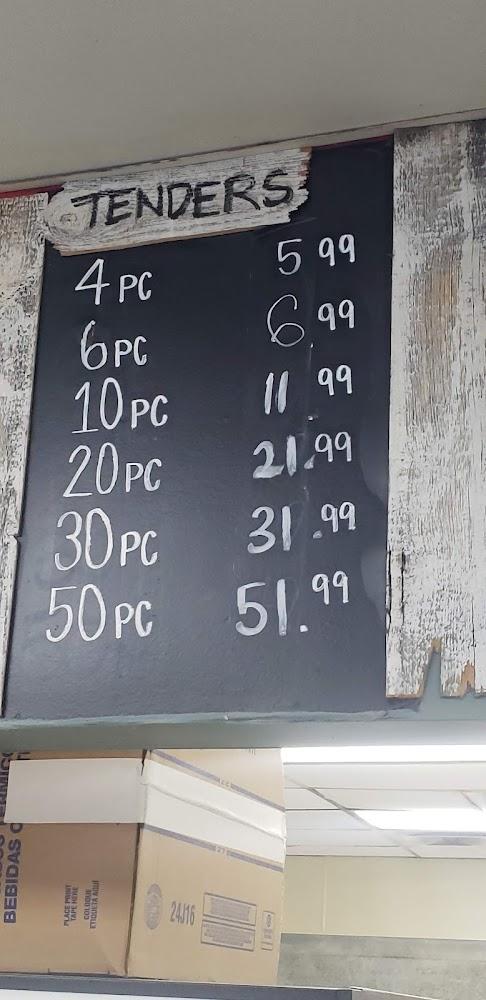 TENDERS
4 PC 5 99
6 PC 6.99
10 PC 11.99
20 PC 21.99
30 PC 31.99
50 PC 51.99
BEBIDAS
PLACE PRINT
TAPE HERE
COLOQUE
ETIQUETA AQUÍ
24J16